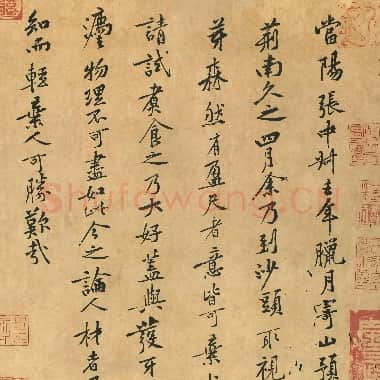 當陽張中叔去年臘月寄山預
荊南久之四月余乃到沙頭取視
芽森然有盈尺者意皆可棄小
請試煮食之乃大好蓋與發牙
物理不可盡如此今之論人材者
知而輕棄人可勝歎哉
Shufawang.CN